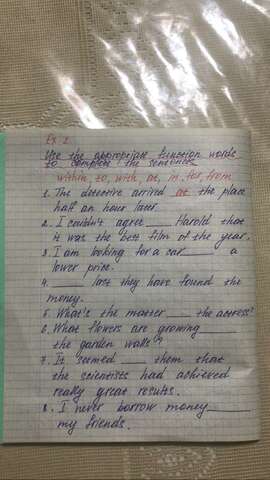 Ex. 2
Use the appropriate function words
to complete the sentences
within, to, with, at, in, for, from
1. The detective arrived at the place
half an hour later.
2. I couldn't agree ____ Harold that
it was the best film of the year.
3. I am looking for a car ____ a
lower price.
4. ____ last they have found the
money.
5. What's the matter ____ the actress?
6. What flowers are growing ____
the garden walls?
7. It seemed ____ them that
the scientists had achieved
really great results.
8. I never borrow money ____
my friends.